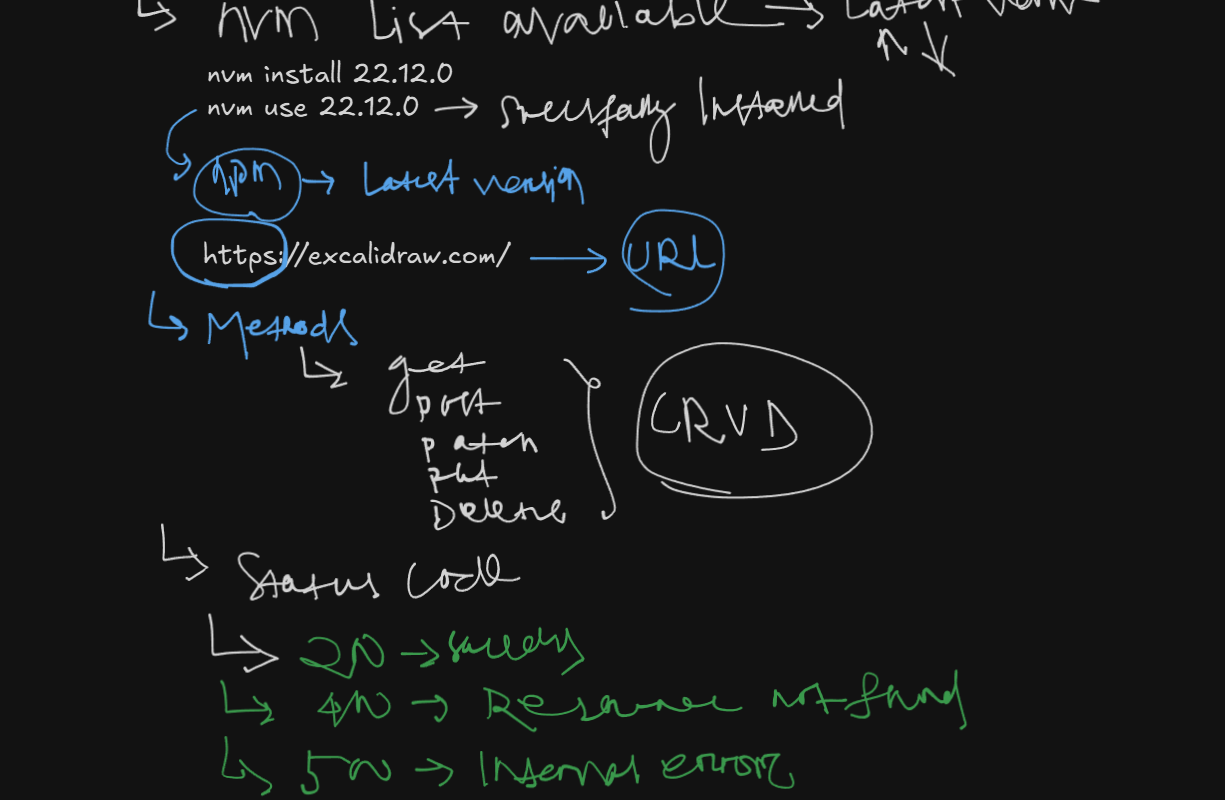 ↳ nvm List available → Latest
nvm install 22.12.0
nvm use 22.12.0 → Installed
npm → Latest version
https://excalidraw.com/ → URL
↳ Methods
↳ get
post
patch
put
Delete
CRUD
↳ Status Code
↳ 200 → success
↳ 400 → Resource not found
↳ 500 → Internal error